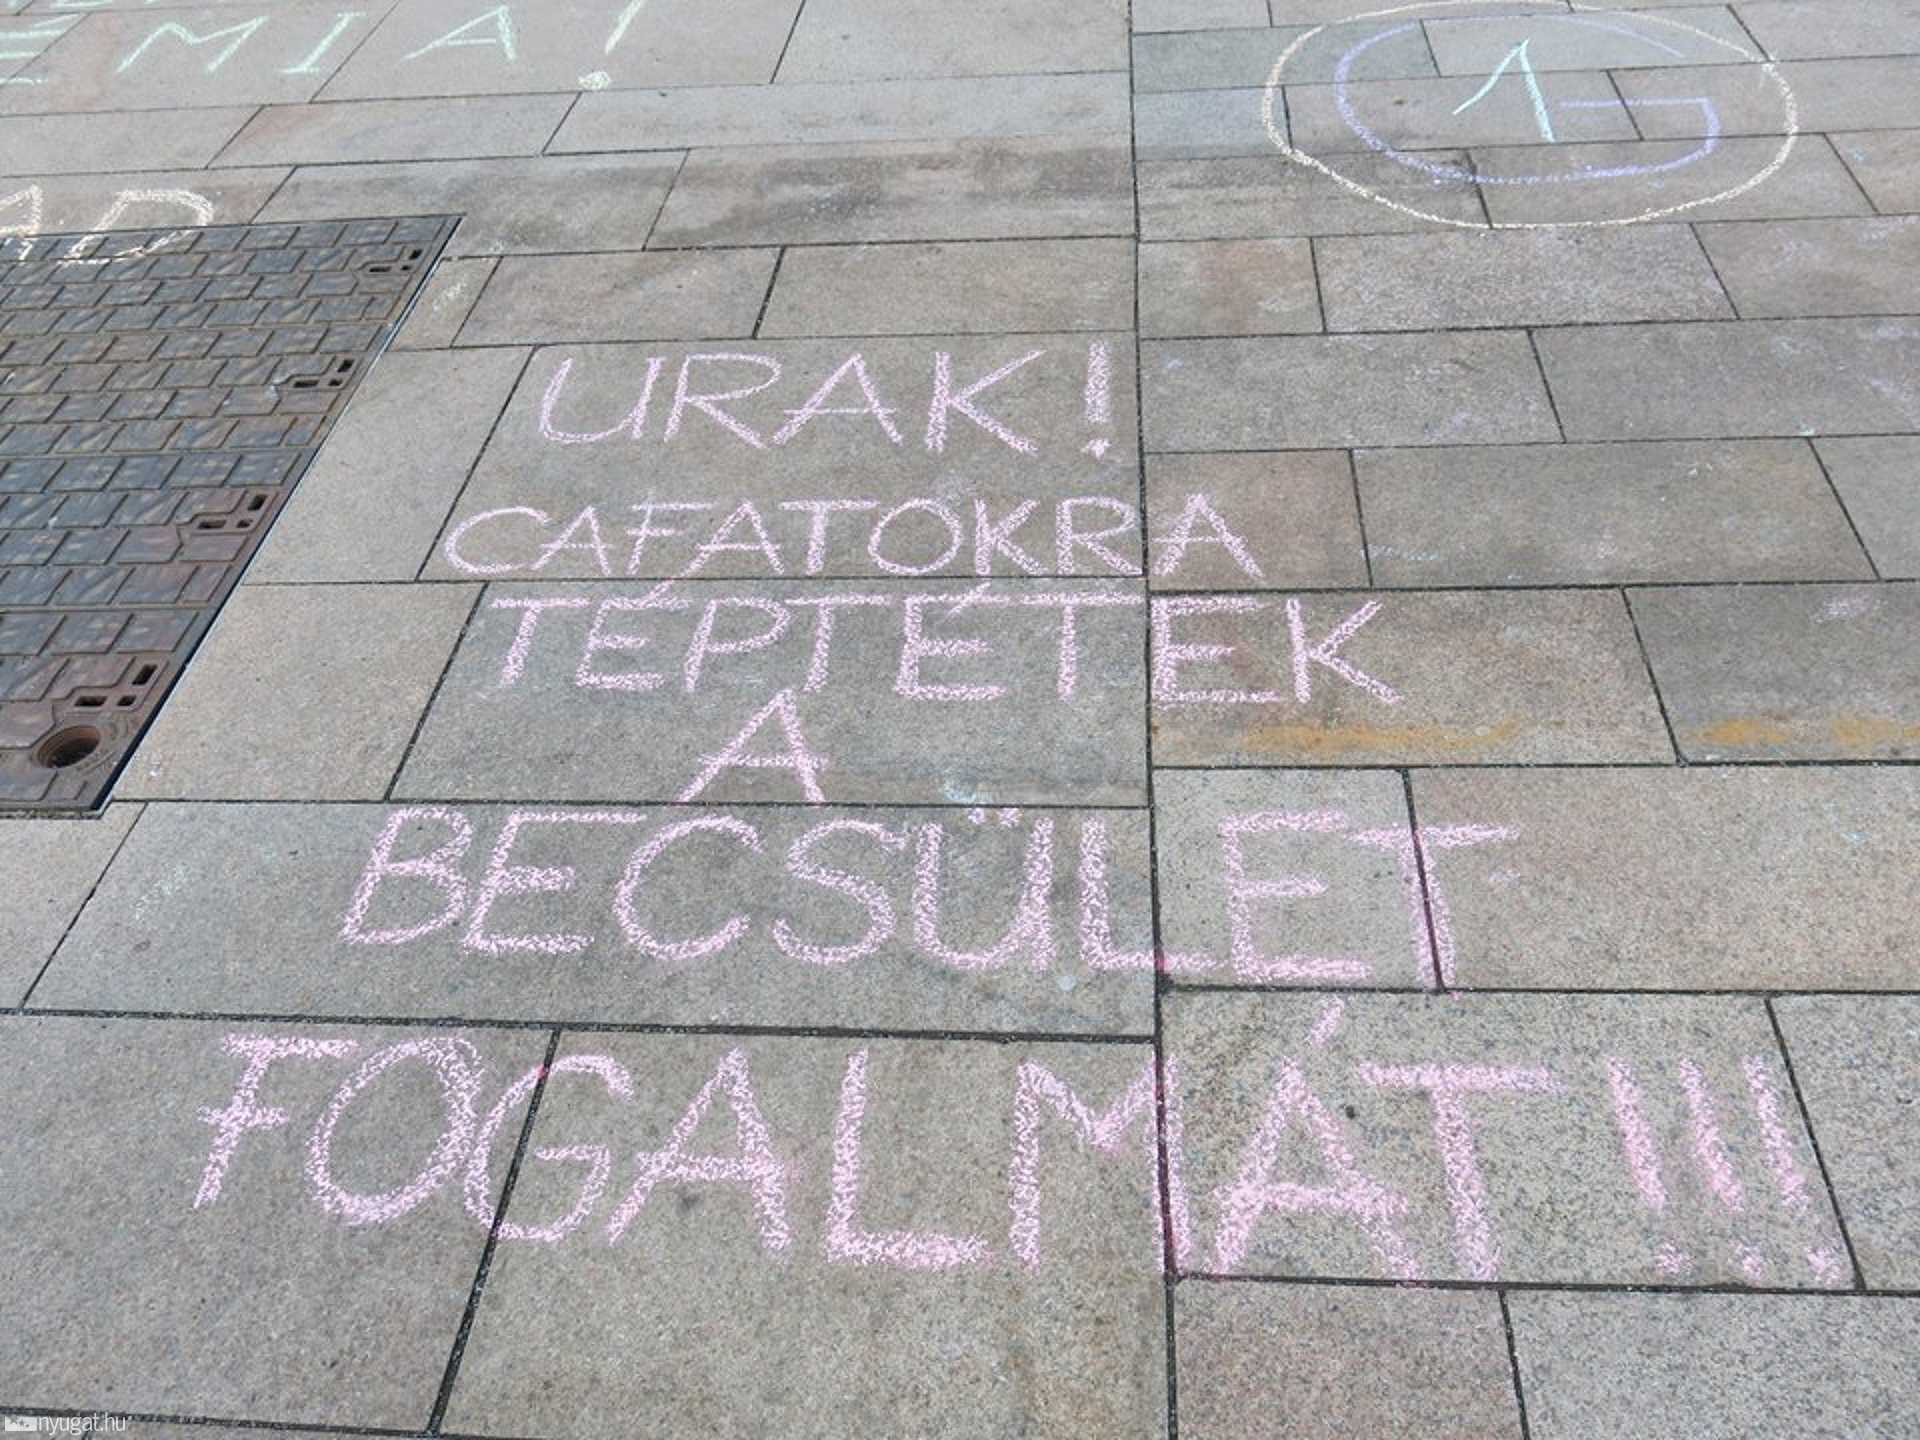 URAK!
CAFATOKRA
TÉPTÉTEK
A
BECSÜLET
FOGALMÁT!!!
1G
nyugat.hu